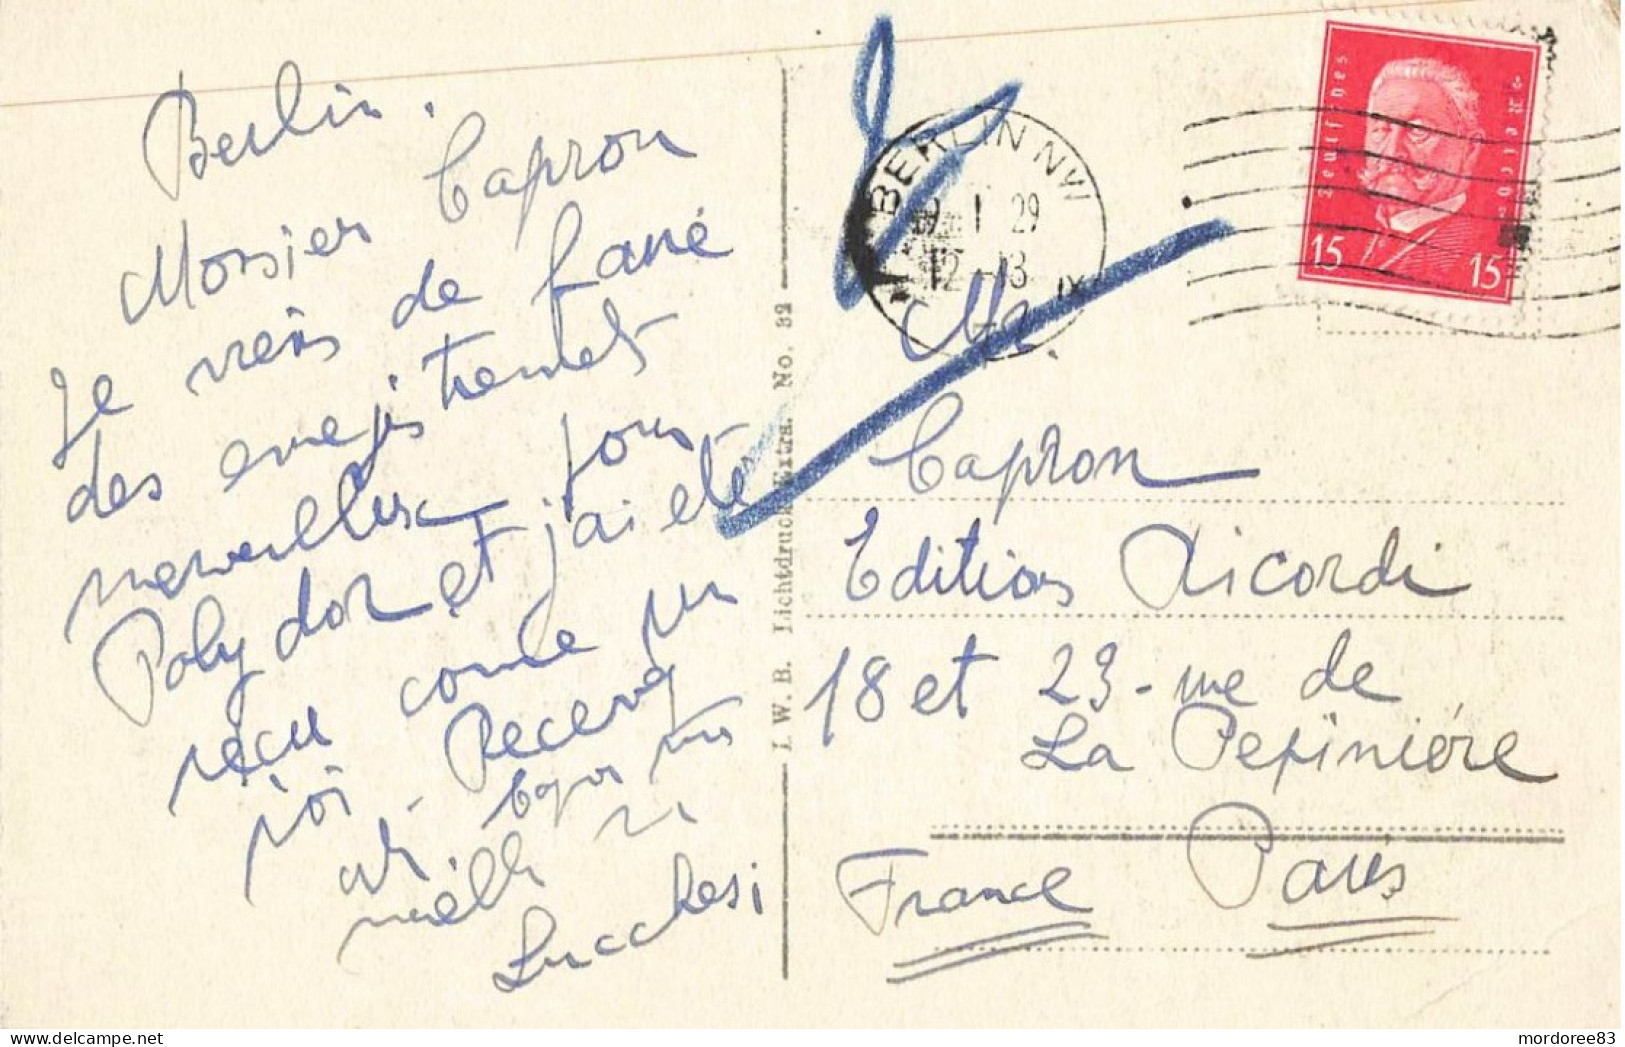 Berlin.
Monsieur Capron
Je viens de faire
des enregistrements
merveilleux pour
Polydor et j'ai eté
reçu comme un
roi - Recevez
mille
Lucchesi
I. W. B. Lichtdruck Extra. No. 32
BERLIN NW
9. 1 29
12 -13
Deutsches Reich
15 15
Mr.
Capron
Editions Ricordi
18 et 23 - rue de
La Pepinière
Paris
France
mordoree83